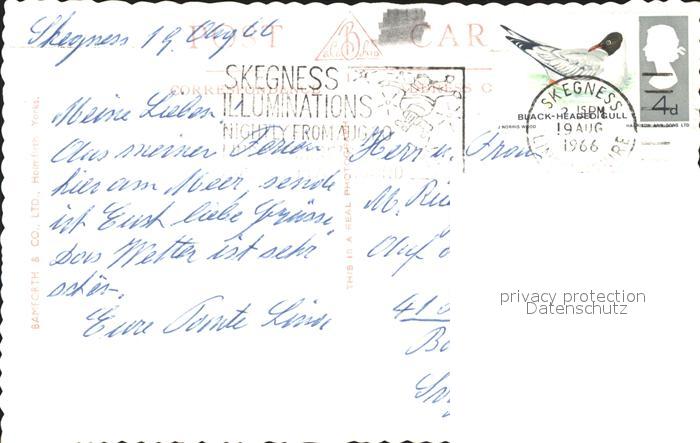 Skegness 19 Aug 66
POST CARD
SKEGNESS
ILLUMINATIONS
NIGHTLY FROM AUG
4d
BLACK-HEADED GULL
J. NORRIS WOOD
HARRISON AND SONS LTD
SKEGNESS
2 15PM
19 AUG
1966
Meine Lieben
Aus meiner Ferien
hier am Meer, sende
ich Euch liebe Grüsse,
Das Wetter ist sehr
schön.
Eure Tante
Herr u. Frau
M.
auf
BAMFORTH & CO., LTD., Holmfirth, Yorks.
THIS IS A REAL PHOTO
privacy protection
Datenschutz